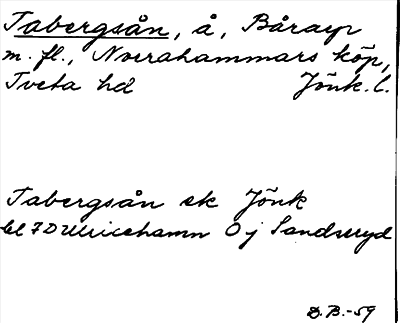 Tabergsån, å, Bårarp
m. fl., Norrahammars köp,
Tveta hd Jönk. l.
Tabergsån ek Jönk
bl 7D Ulricehamn Oj Sandseryd
D.B.-59